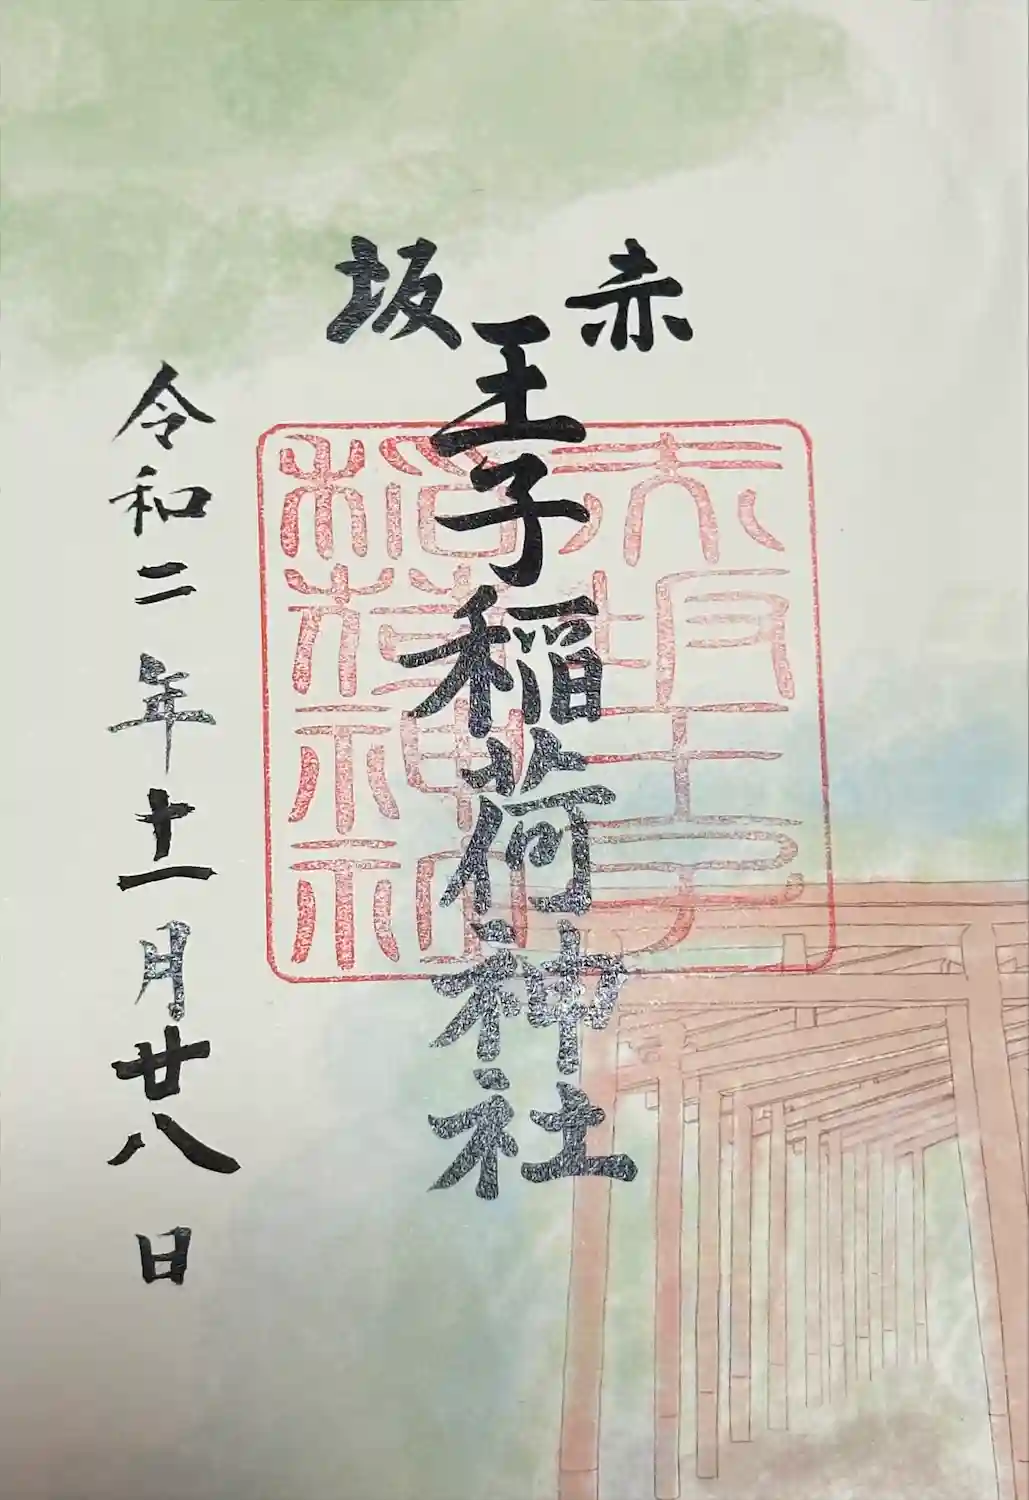 赤坂
王子稲荷神社
令和二年十一月廿八日
赤坂王子
稲荷神社